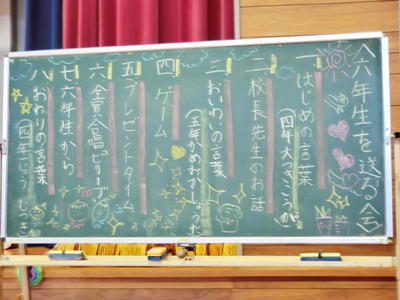 〈六年生を送る会〉
一 はじめの言葉
(四年 大
二 校長先生のお話
三 おいわいの言葉
(五年
四 ゲーム
五 プレゼントタイム
六 全員合唱「ビリーブ」
七 六年生から
八 おわりの言葉
(四年